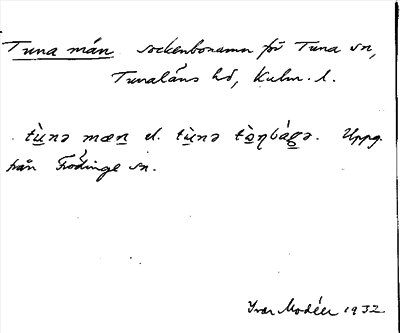 Tuna män sockenbonamn för Tuna sn,
Tunaläns hd, Kalm. l.
tùnə mæn el. tùnə tòŋbágə. Uppg.
från Frödinge sn.
Ivar Modéer 1932